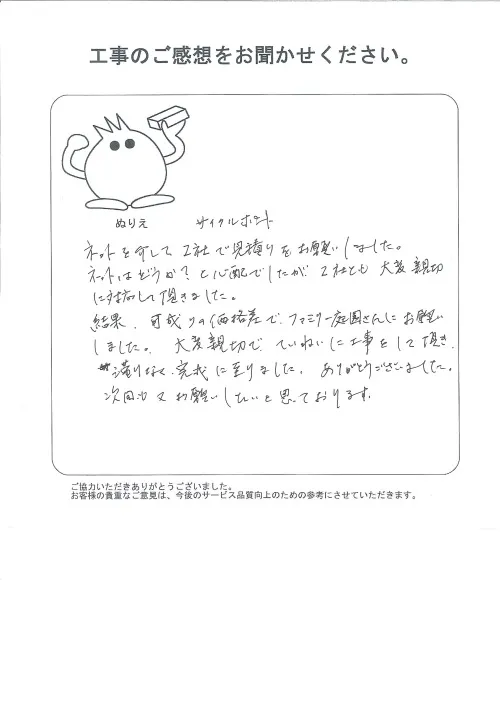 工事のご感想をお聞かせください。
ぬりえ サイクルポート
ネットを介して2社で見積りをお願いしました。
ネットはどうか?と心配でしたが2社とも大変親切
に対応して頂きました。
結果、可成りの価格差で、ファミリー庭園さんにお願い
しました。大変親切で ていねいに工事をして頂き、
滞りなく完成に至りました。ありがとうございました。
次回も又お願いしたいと思っております。
ご協力いただきありがとうございました。
お客様の貴重なご意見は、今後のサービス品質向上のための参考にさせていただきます。